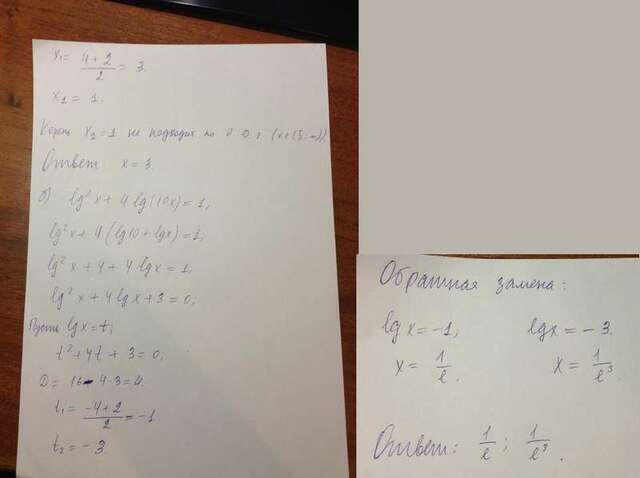 x₁ = (4+2)/2 = 3.
x₂ = 1.
Корень x₂ = 1 не подходит по О.О.
Ответ x = 3.
б) lg²x + 4 lg(10x) = 1;
lg²x + 4(lg10 + lgx) = 1;
lg²x + 4 + 4 lgx = 1;
lg²x + 4 lgx + 3 = 0;
Пусть lgx = t;
t² + 4t + 3 = 0;
D = 16 - 4·3 = 4.
t₁ = (-4+2)/2 = -1
t₂ = -3.
Обратная замена:
lgx = -1, lgx = -3.
x = 1/e. x = 1/e³.
Ответ: 1/e; 1/e³.